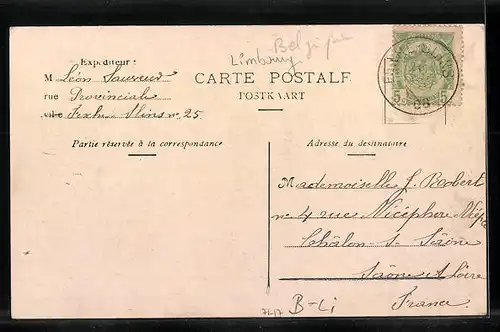 Expéditeur :
M Léon Sauveur
rue Provinciale
ville Fexhe Slins no 25
Limbourg
Belgique
CARTE POSTALE
POSTKAART
5 5
06
Partie réservée à la correspondance
Adresse du destinataire
Mademoiselle J. Robert
no 4 rue Nicéphore Niépce
Châlon-s-Saône
Saône et Loire
France
B-Li